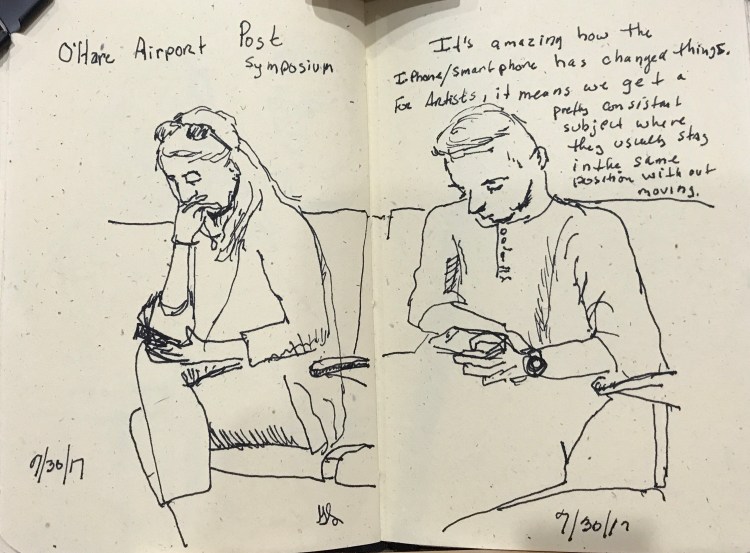 O'Hare Airport Post
Symposium
7/30/17
It's amazing how the
IPhone/smartphone has changed things.
For Artists, it means we get a
pretty consistant
subject where
they usually stay
in the same
position with out
moving.
7/30/17